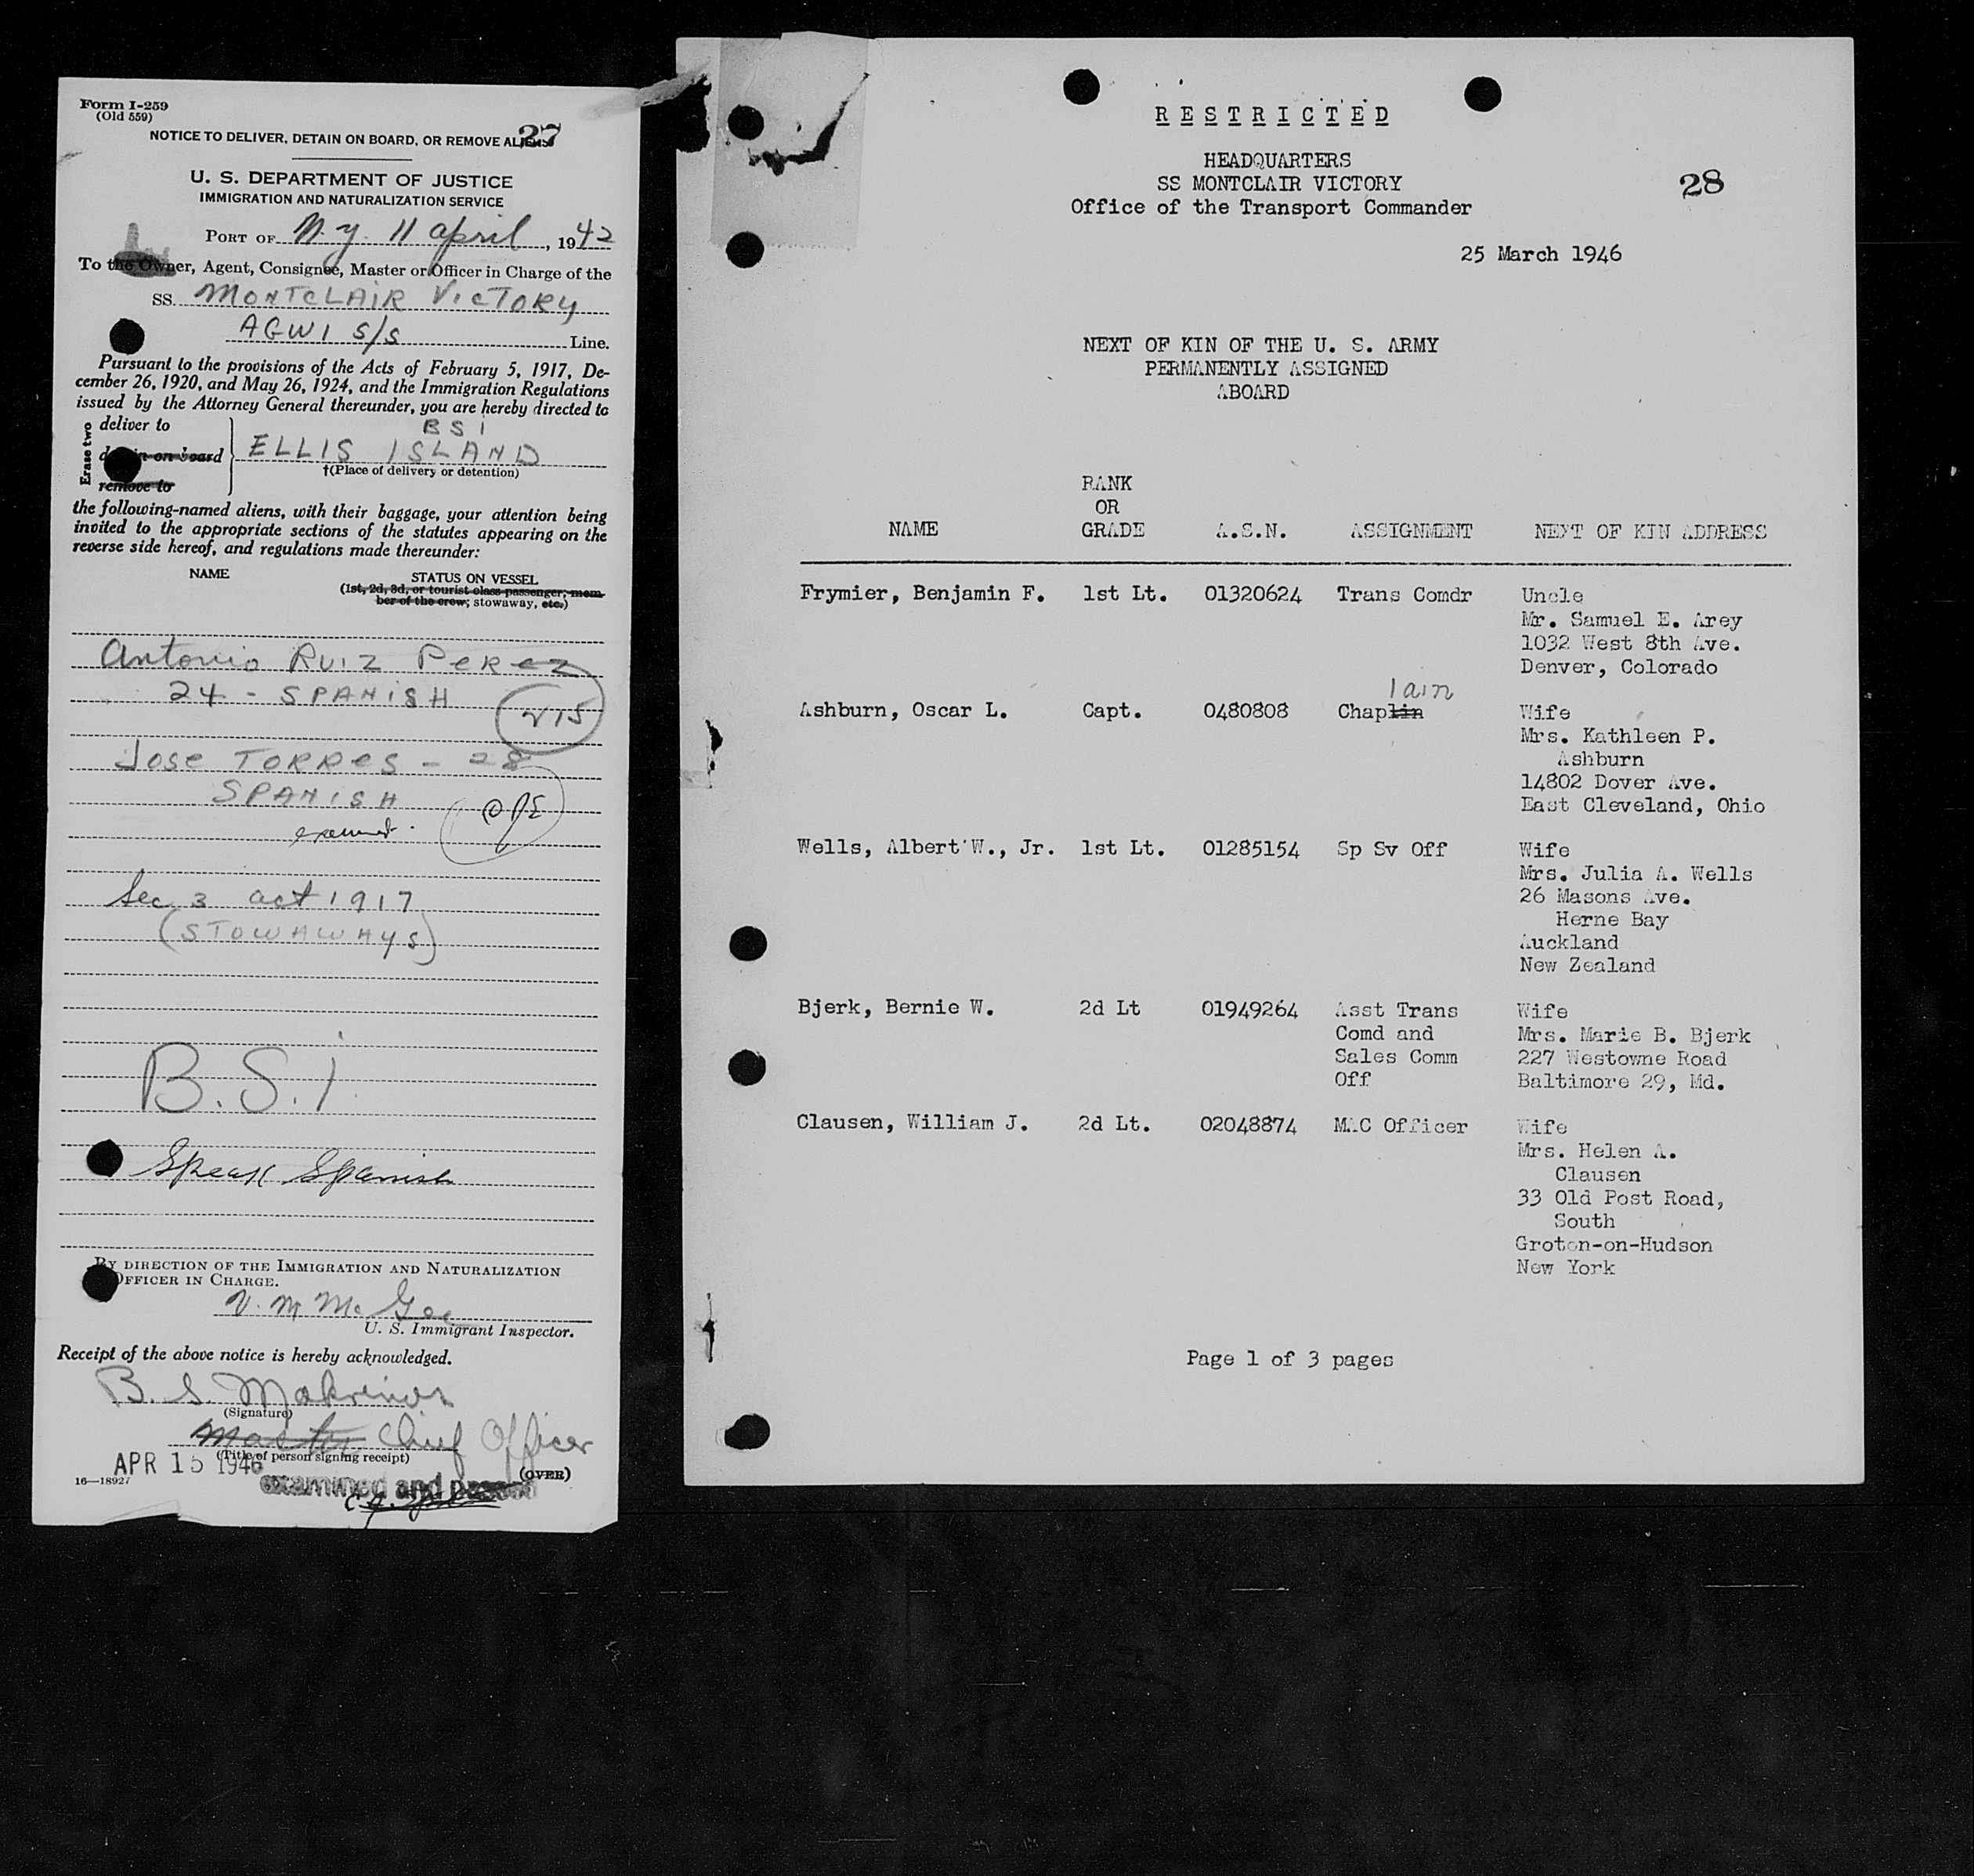 Form I-259
(Old 559)
27
NOTICE TO DELIVER, DETAIN ON BOARD, OR REMOVE ALIENS
U. S. DEPARTMENT OF JUSTICE
IMMIGRATION AND NATURALIZATION SERVICE
PORT OF N. Y. 11 April, 1942
To the Owner, Agent, Consignee, Master or Officer in Charge of the
SS. MONTCLAIR VICTORY
AGWI S/S Line.
Pursuant to the provisions of the Acts of February 5, 1917, De-
cember 26, 1920, and May 26, 1924, and the Immigration Regulations
issued by the Attorney General thereunder, you are hereby directed to
Erase two
deliver to
BSI
detain on board
ELLIS ISLAND
†(Place of delivery or detention)
remove to
the following-named aliens, with their baggage, your attention being
invited to the appropriate sections of the statutes appearing on the
reverse side hereof, and regulations made thereunder:
NAME
STATUS ON VESSEL
(1st, 2d, 3d, or tourist class passenger; mem-
ber of the crew; stowaway, etc.)
Antonio Ruiz Perez
24 - SPANISH
Jose TORRES - 28
SPANISH
Sec. 3 act 1917
(STOWAWAYS)
B.S.I.
Speak Spanish
BY DIRECTION OF THE IMMIGRATION AND NATURALIZATION
OFFICER IN CHARGE.
V. M. McGee
U. S. Immigrant Inspector.
Receipt of the above notice is hereby acknowledged.
B. S.
(Signature)
Master Chief Officer
(Title of person signing receipt)
APR 15 1946
(OVER)
16—18927
examined and passed
R E S T R I C T E D
HEADQUARTERS
SS MONTCLAIR VICTORY
28
Office of the Transport Commander
25 March 1946
NEXT OF KIN OF THE U. S. ARMY
PERMANENTLY ASSIGNED
ABOARD
RANK
OR
NAME GRADE A.S.N. ASSIGNMENT NEXT OF KIN ADDRESS
Frymier, Benjamin F. 1st Lt. 01320624 Trans Comdr Uncle
Mr. Samuel E. Arey
1032 West 8th Ave.
Denver, Colorado
lain
Ashburn, Oscar L. Capt. 0480808 Chaplin Wife
Mrs. Kathleen P.
Ashburn
14802 Dover Ave.
East Cleveland, Ohio
Wells, Albert W., Jr. 1st Lt. 01285154 Sp Sv Off Wife
Mrs. Julia A. Wells
26 Masons Ave.
Herne Bay
Auckland
New Zealand
Bjerk, Bernie W. 2d Lt 01949264 Asst Trans Wife
Comd and Mrs. Marie B. Bjerk
Sales Comm 227 Westowne Road
Off Baltimore 29, Md.
Clausen, William J. 2d Lt. 02048874 MAC Officer Wife
Mrs. Helen A.
Clausen
33 Old Post Road,
South
Groton-on-Hudson
New York
Page 1 of 3 pages